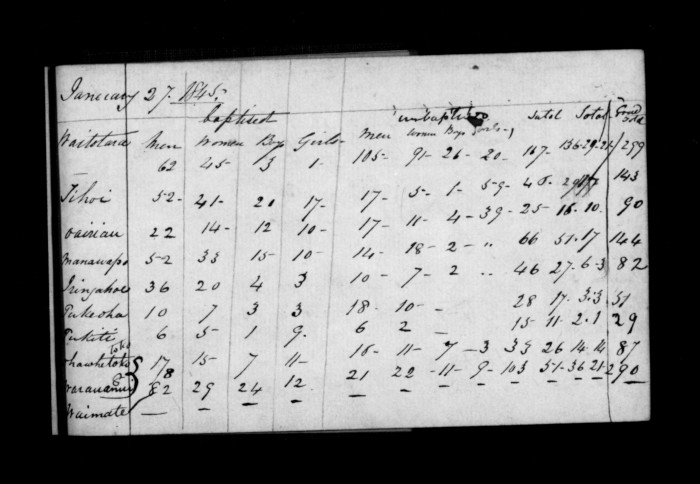 January 27. 1845.
baptised unbaptised Total Total Grand
Waitotara Men Women Boys Girls Men Women Boys Girls
62 45 3 1 105 91 26 20 167 136 29 21 299
Tihoi 52 41 20 17 17 5 1 143
22 14 12 10 17 11 4 25 16 10 90
Manawapo 52 33 15 10 14 18 2 " 66 51 17 144
36 20 4 3 10 7 2 " 46 27 6 3 82
Pukeoha 10 7 3 3 18 10 - 28 17 3 3 51
Pukiti 6 5 1 9 6 2 - 15 11 2 1 29
17 15 7 11 16 11 7 3 33 26 14 14 87
82 29 24 12 21 22 11 9 103 51 36 21 290
Waimate — — — — — — — — — — — —